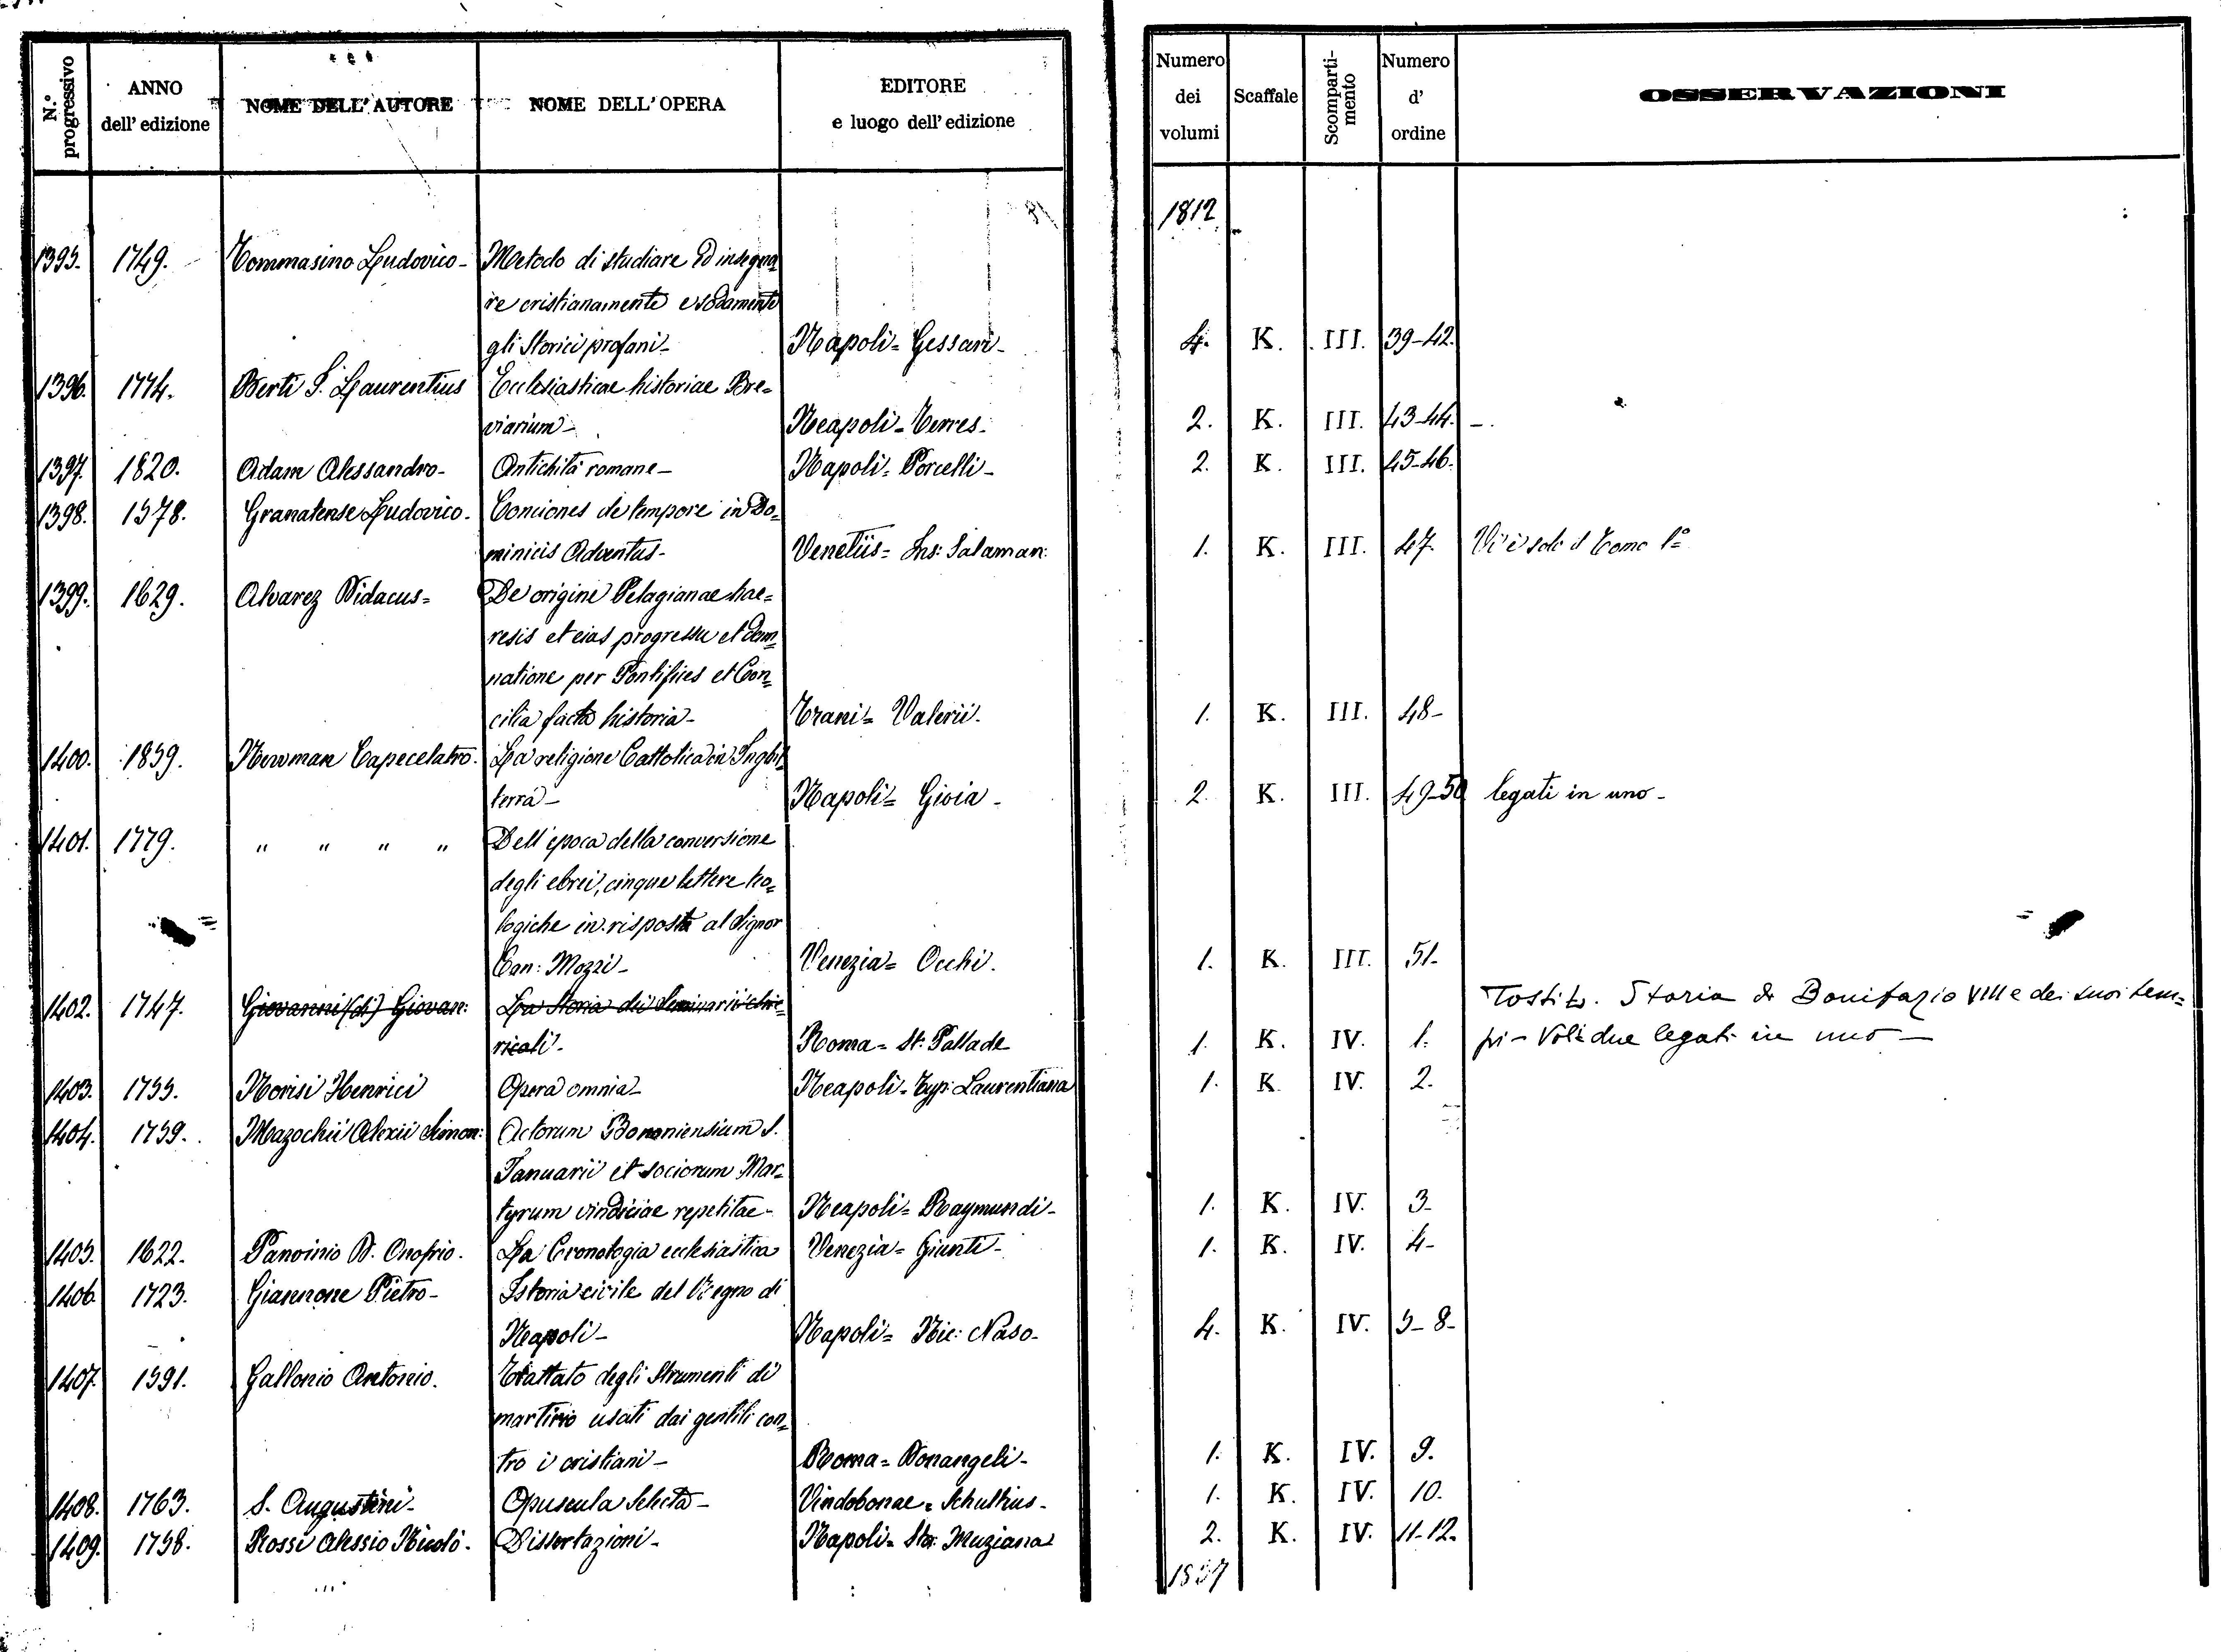 N.° progressivo
ANNO dell' edizione
NOME DELL' AUTORE
NOME DELL' OPERA
EDITORE e luogo dell' edizione
Numero dei volumi
Scaffale
Scomparti-mento
Numero d' ordine
OSSERVAZIONI
1812
1395. 1749. Tommasino Ludovico - Metodo di studiare ed insegna
re cristianamente e sodamente
gli Storici profani - Napoli = Gessari - 4. K. III. 39-42.
1396. 1774. Berti S. Laurentius Ecclesiasticae historiae Bre=
viarium - Neapoli = Terres - 2. K. III. 43-44. -.
1397. 1820. Adam Alessandro - Antichità romane - Napoli = Porcelli - 2. K. III. 45-46.
1398. 1578. Granatense Ludovico. Conciones de tempore in Do=
minicis Adventus - Venetiis = Ins: Salaman: 1. K. III. 47. Vi è solo il Tomo 1°
1399. 1629. Alvarez Didacus = De origine Pelagianae hae=
resis et eius progressu et dam=
natione per Pontifices et Con=
cilia facta historia - Trani = Valerii. 1. K. III. 48-
1400. 1859. Newman Capecelatro. La religione Cattolica in Inghil=
terra - Napoli = Gioia - 2. K. III. 49-50 legati in uno -
1401. 1779. " " " " Dell'epoca della conversione
degli ebrei, cinque lettere teo=
logiche in risposta al Signor
Can: Mozzi - Venezia = Occhi. 1. K. III. 51-
1402. 1747. Giovanni (di) Giovan: La Storia dei Seminarii chie=
ricali - Roma = St: Pallade 1. K. IV. 1.
Tosti L. Storia di Bonifazio VIII e dei suoi tem=
pi - Vol: due legati in uno -
1403. 1755. Norisi Henrici Opera omnia - Neapoli = Typ: Laurentiana 1. K. IV. 2.
1404. 1759. Mazochii Alexii Simon: Actorum Bononiensium S.
Januarii et sociorum Mar=
tyrum vindiciae repetitae - Neapoli = Raymundi - 1. K. IV. 3-
1405. 1622. Panvinio D. Onofrio. La Cronologia ecclesiastica Venezia = Giunti - 1. K. IV. 4-
1406. 1723. Giannone Pietro - Istoria civile del Regno di
Napoli - Napoli = Nic: Naso - 4. K. IV. 5-8-
1407. 1591. Gallonio Antonio. Trattato degli Strumenti di
martirio usati dai gentili con=
tro i cristiani - Roma = Donangeli - 1. K. IV. 9.
1408. 1763. S. Augustini - Opuscula Selecta - Vindobonae = Schultius - 1. K. IV. 10.
1409. 1758. Rossi Alessio Nicolò - Dissertazioni - Napoli = Sta: Muziana 2. K. IV. 11-12.
1837